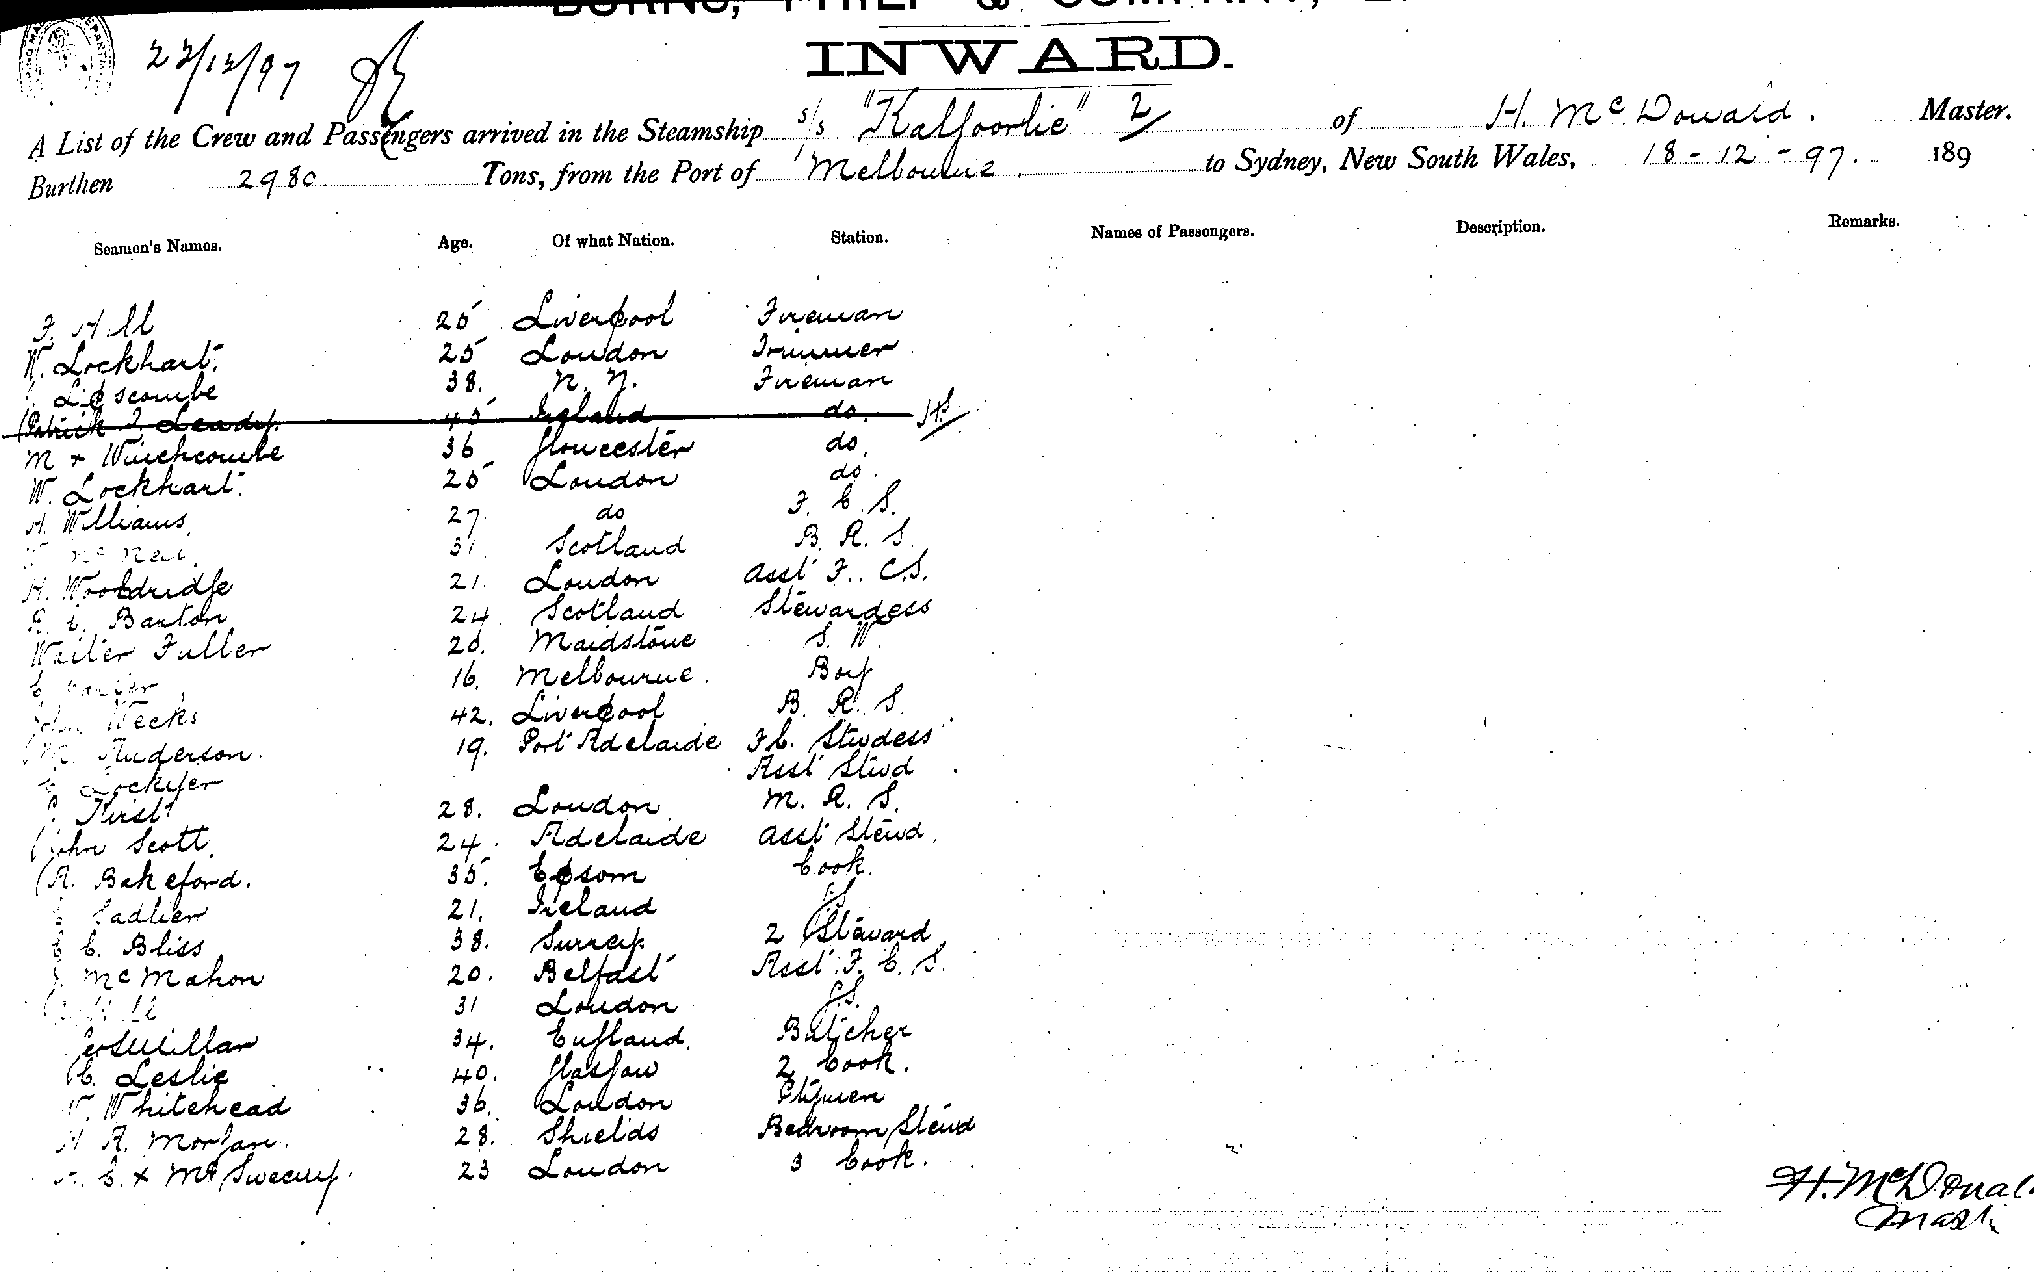 BURNS, PHILP & COMPANY,
INWARD.
22/12/97
A List of the Crew and Passengers arrived in the Steamship s/s "Kalgoorlie" 2 of H. McDonald. Master.
Burthen 2980 Tons, from the Port of Melbourne to Sydney, New South Wales, 18-12-97. 189
Seamen's Names. Age. Of what Nation. Station. Names of Passengers. Description. Remarks.
F. Hill 25 Liverpool Fireman
W. Lockhart. 25 London Trimmer
Lipscombe 38. N. Z. Fireman
Patrick J. Leady. 45 Ireland do.
M x Winchcombe 36 Gloucester do.
W. Lockhart. 25 London do.
A. Williams. 27 do F. C. S.
McNeil. 31 Scotland B. R. S.
H. Wooldridge 21. London Asst F. C.S.
Barton 24 Scotland Stewardess
Walter Fuller 20. Maidstone S. W.
16. Melbourne. Boy
John Weeks 42. Liverpool B. R. S.
M. Anderson. 19. Port Adelaide F.C. Stewdess
Lockyer Asst Stewd
Hirst 28. London M. R. S.
John Scott. 24. Adelaide Asst Stewd.
A. Bakeford. 35. Epsom Cook.
Sadlier 21. Ireland
C. Bliss 38. Surrey 2 Steward
J. McMahon 20. Belfast Asst. F. C. S.
Hill 31 London
Millar 34. England. Butcher
C. Leslie 40. Glasgow 2 Cook.
W. Whitehead 36. London
H. R. Morgan. 28. Shields Bedroom Stewd
C. x McSweeny. 23 London 3 Cook.
H. McDonal